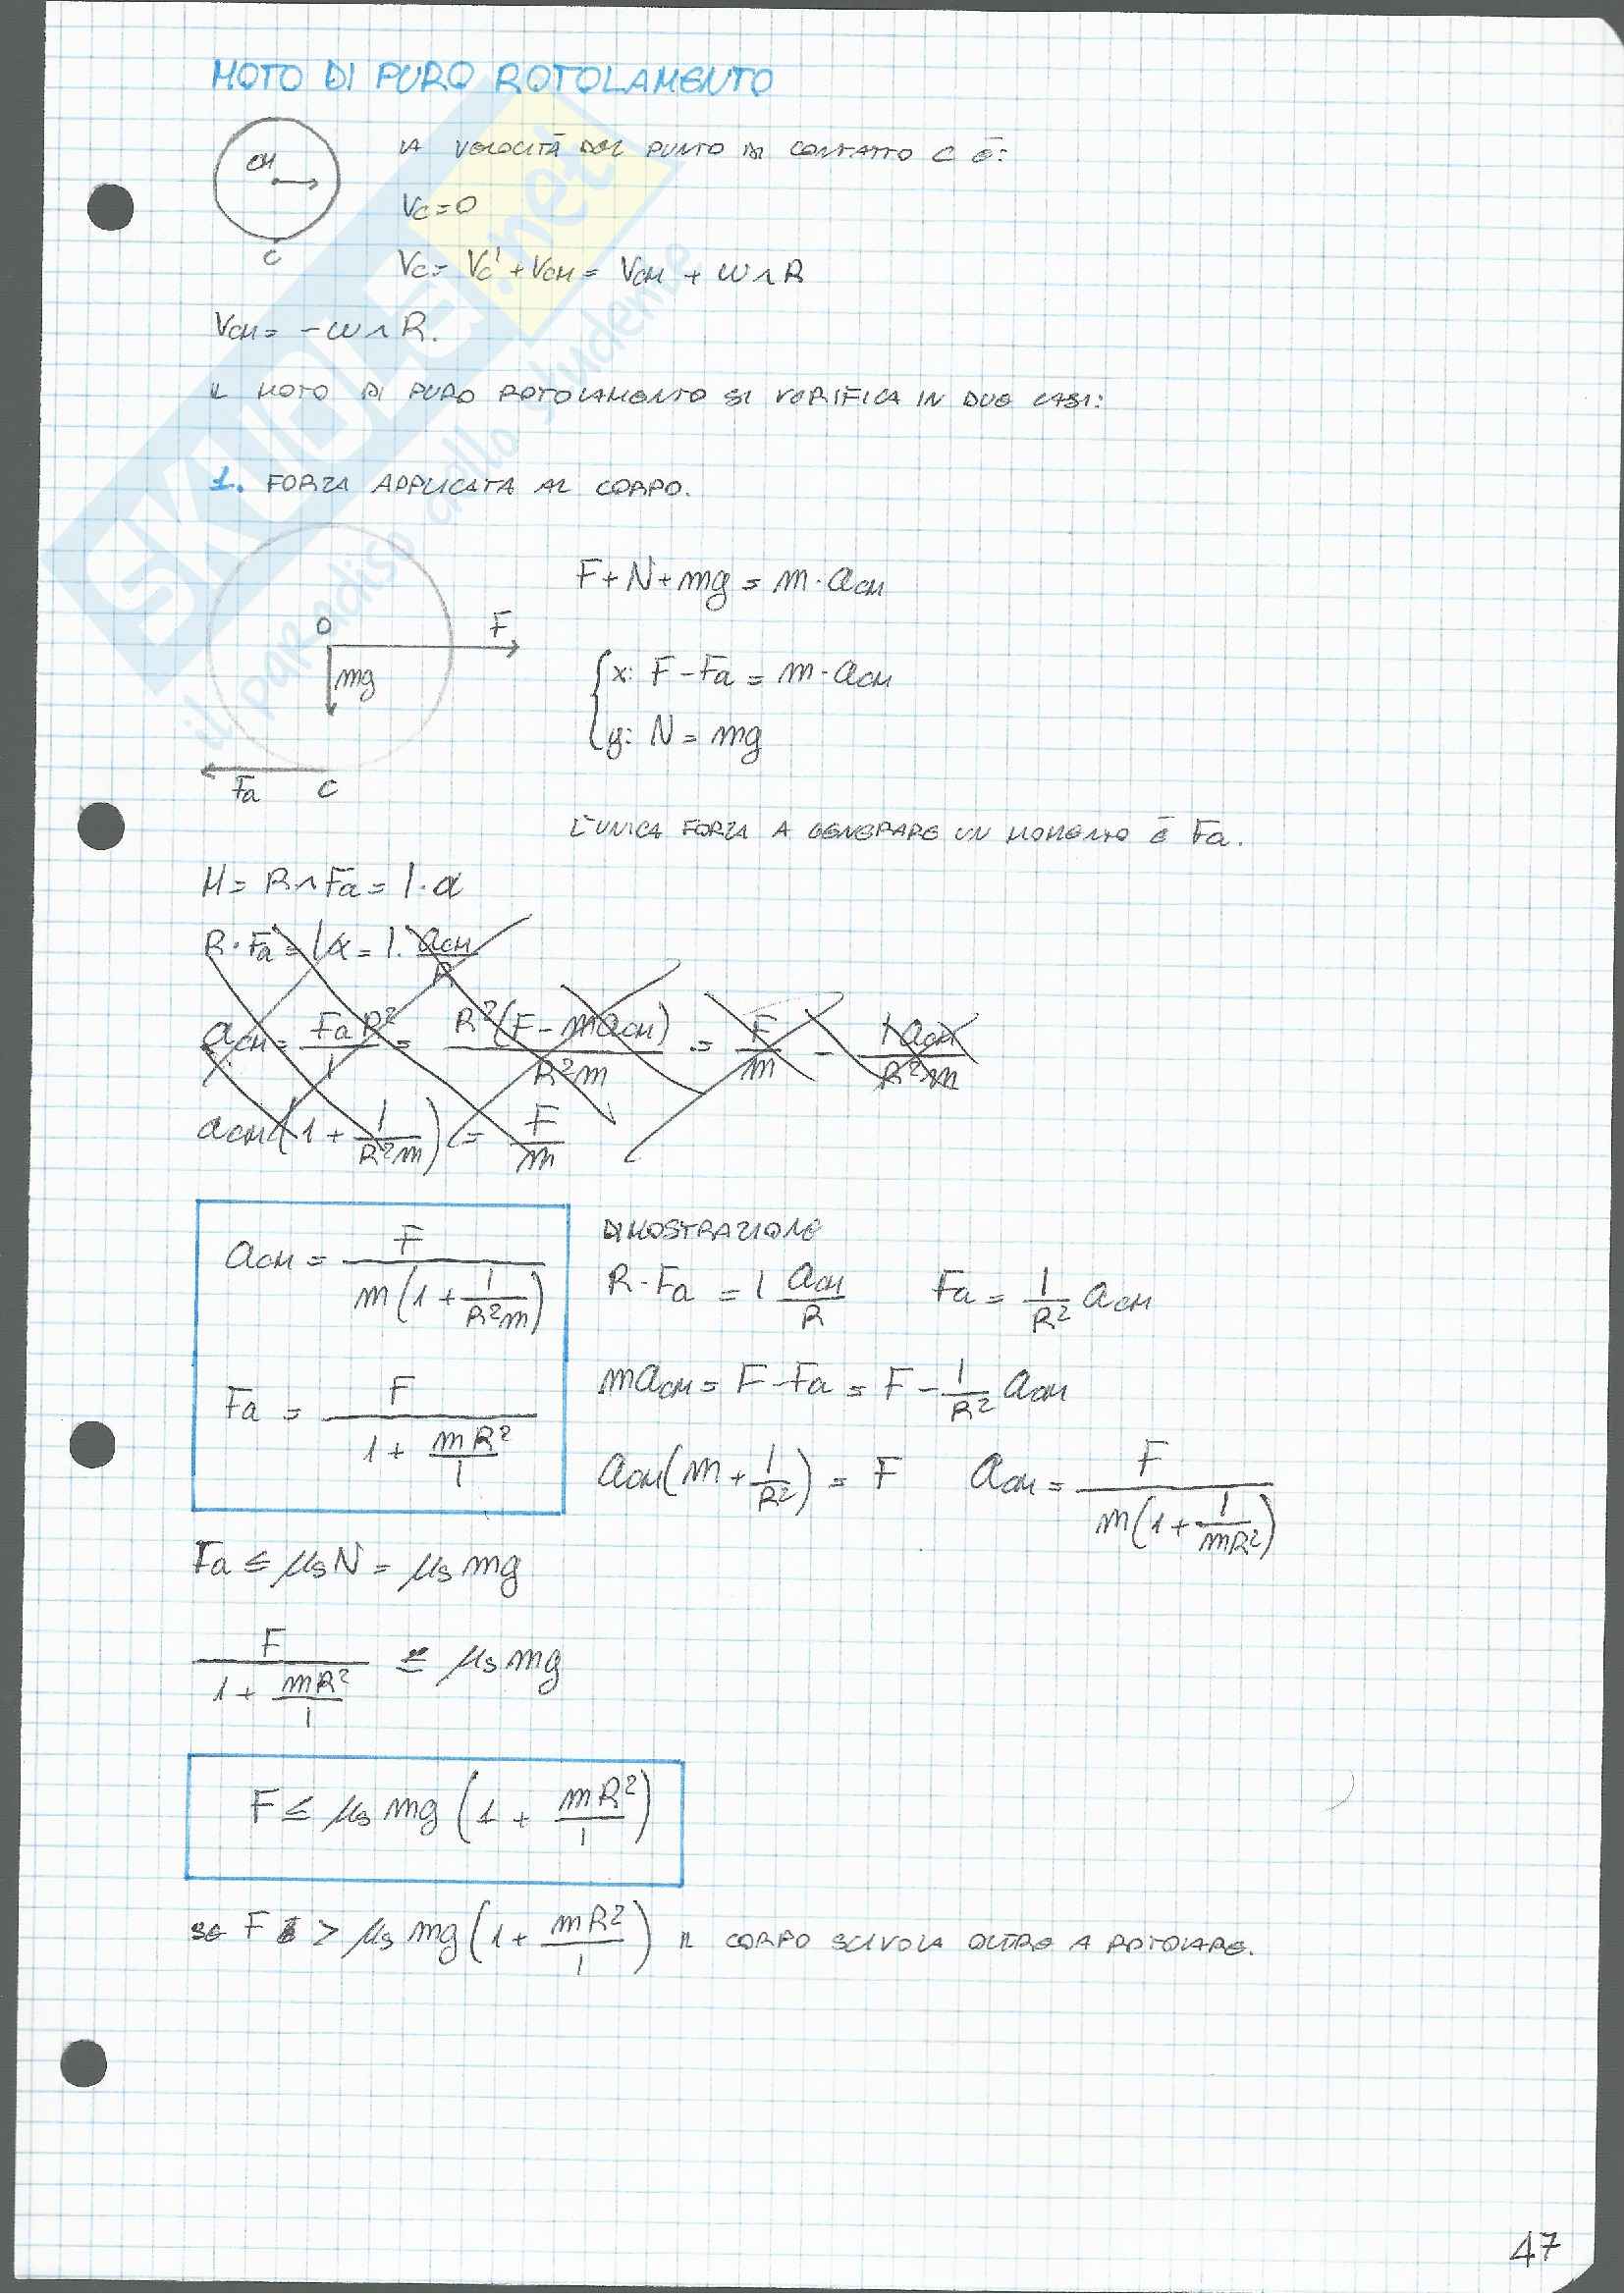 MOTO DI PURO ROTOLAMENTO
CM
C
LA VELOCITÀ DEL PUNTO DI CONTATTO C È:
Vc=0
Vc= Vc' + VCM = VCM + ω∧R
VCM = -ω∧R.
IL MOTO DI PURO ROTOLAMENTO SI VERIFICA IN DUE CASI:
1. FORZA APPLICATA AL CORPO.
O
F
mg
Fa C
F+N+mg = m·aCM
x: F-Fa = m·aCM
y: N = mg
L'UNICA FORZA A GENERARE UN MOMENTO È Fa.
M = R∧Fa = I·α
R·Fa = Iα = I·aCM/R
aCM = FaR²/I = R²(F-maCM)/R²m = F/m - IaCM/R²m
aCM(1 + I/R²m) = F/m
aCM = F/m(1 + I/R²m)
Fa = F/1 + mR²/I
DIMOSTRAZIONE
R·Fa = I aCM/R Fa = I/R² aCM
maCM = F-Fa = F - I/R² aCM
aCM(m + I/R²) = F aCM = F/m(1 + I/mR²)
Fa ≤ μsN = μs mg
F/1 + mR²/I ≤ μs mg
F ≤ μs mg (1 + mR²/I)
SE F > μs mg (1 + mR²/I) IL CORPO SCIVOLA OLTRE A ROTOLARE.
47
SKUOLA.net
il paradiso dello studente